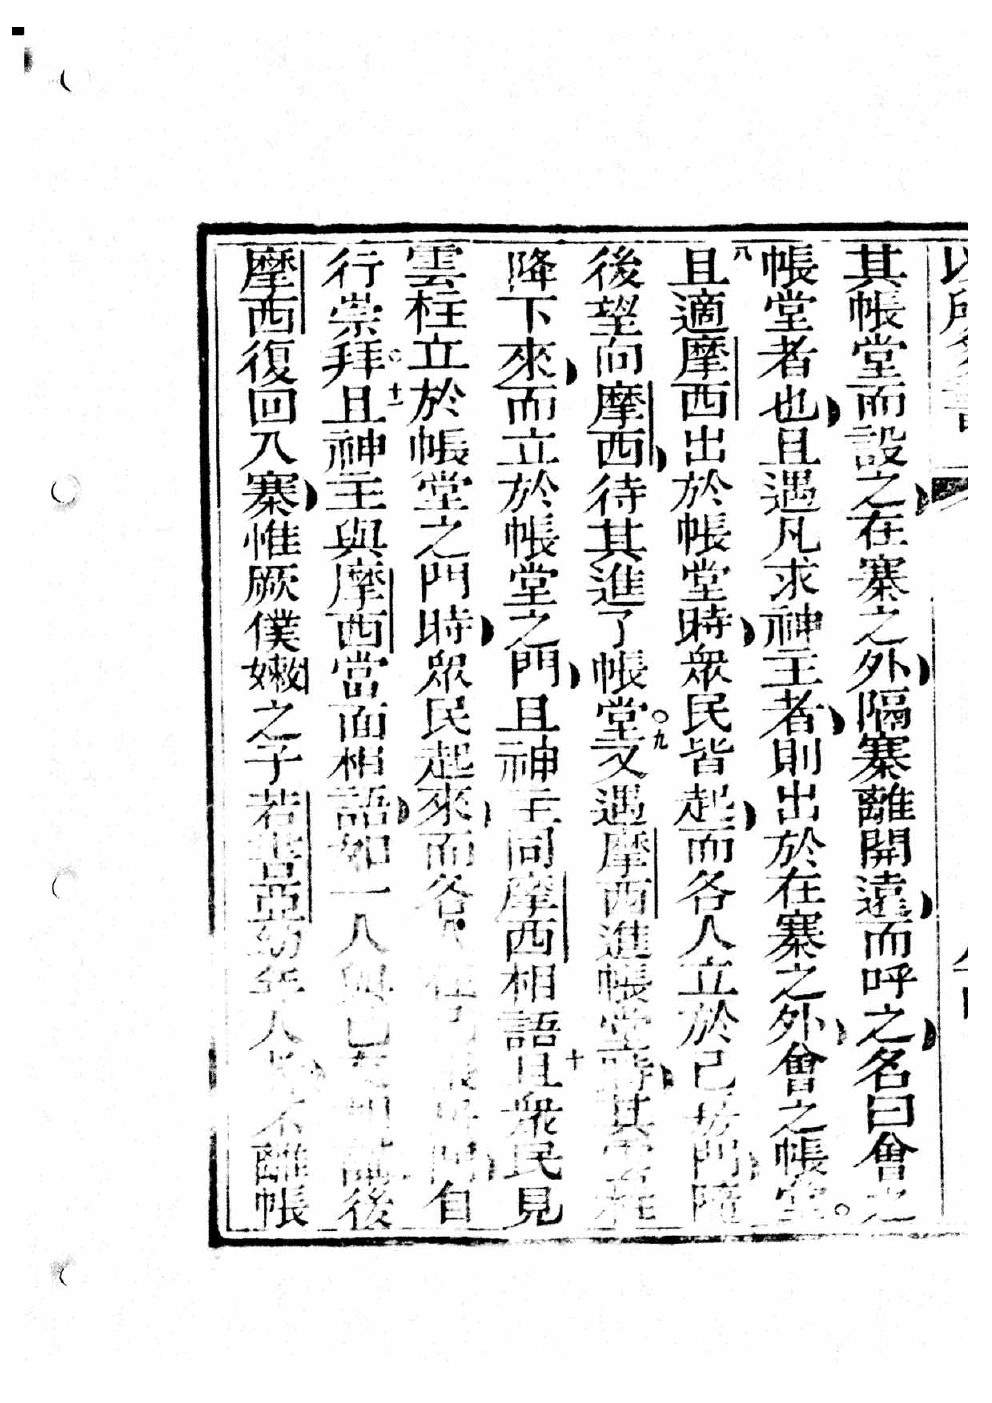 其帳堂而設之在寨之外隔寨離開遠而呼之名曰會之
帳堂者也且遇凡求神主者則出於在寨之外會之帳堂。
八且適摩西出於帳堂時衆民皆起而各人立於己房門隨
後望向摩西待其進了帳堂。九又遇摩西進帳堂時其雲柱
降下來而立於帳堂之門且神主同摩西相語十且衆民見
雲柱立於帳堂之門時衆民起來而各人 門自
行崇拜。十一且神主與摩西當面相語如一人與己 後
摩西復回入寨惟厥僕嫩之子若書亞幼年人 不離帳